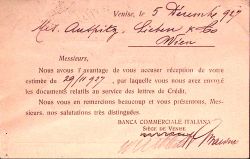 Venise, le 5 Décembre 1927
Auspitz, Lieben & Co
Wien
Messieurs,
Nous avons l'avantage de vous accuser réception de votre
estimée de 29/11/927, par laquelle vous nous avez envoyé
les documents relatifs au service des lettres de Crédit.
Nous vous en remercions beaucoup et vous présentons, Messieurs,
nos salutations très distinguées.
BANCA COMMERCIALE ITALIANA
SIÈGE DE VENISE